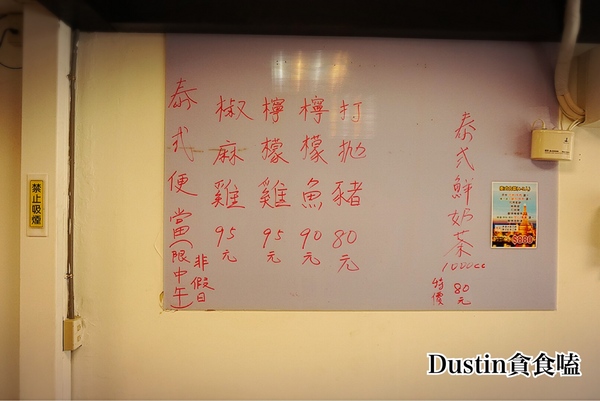 泰式便當(限中午)
非假日
椒麻雞 95元
檸檬雞 95元
檸檬魚 90元
打拋豬 80元
泰式鮮奶茶
1000cc
特價 80元
$880
禁止吸煙
Dustin貪食嗑